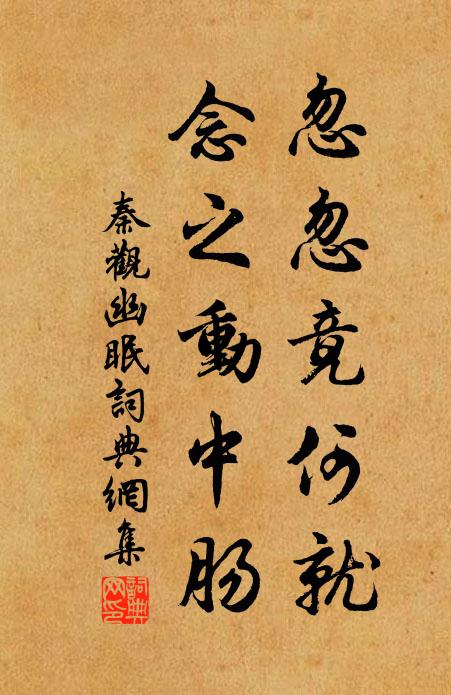 忽忽竟何就
念之動中腸
秦觀幽眠詞典網集
詞典
网印